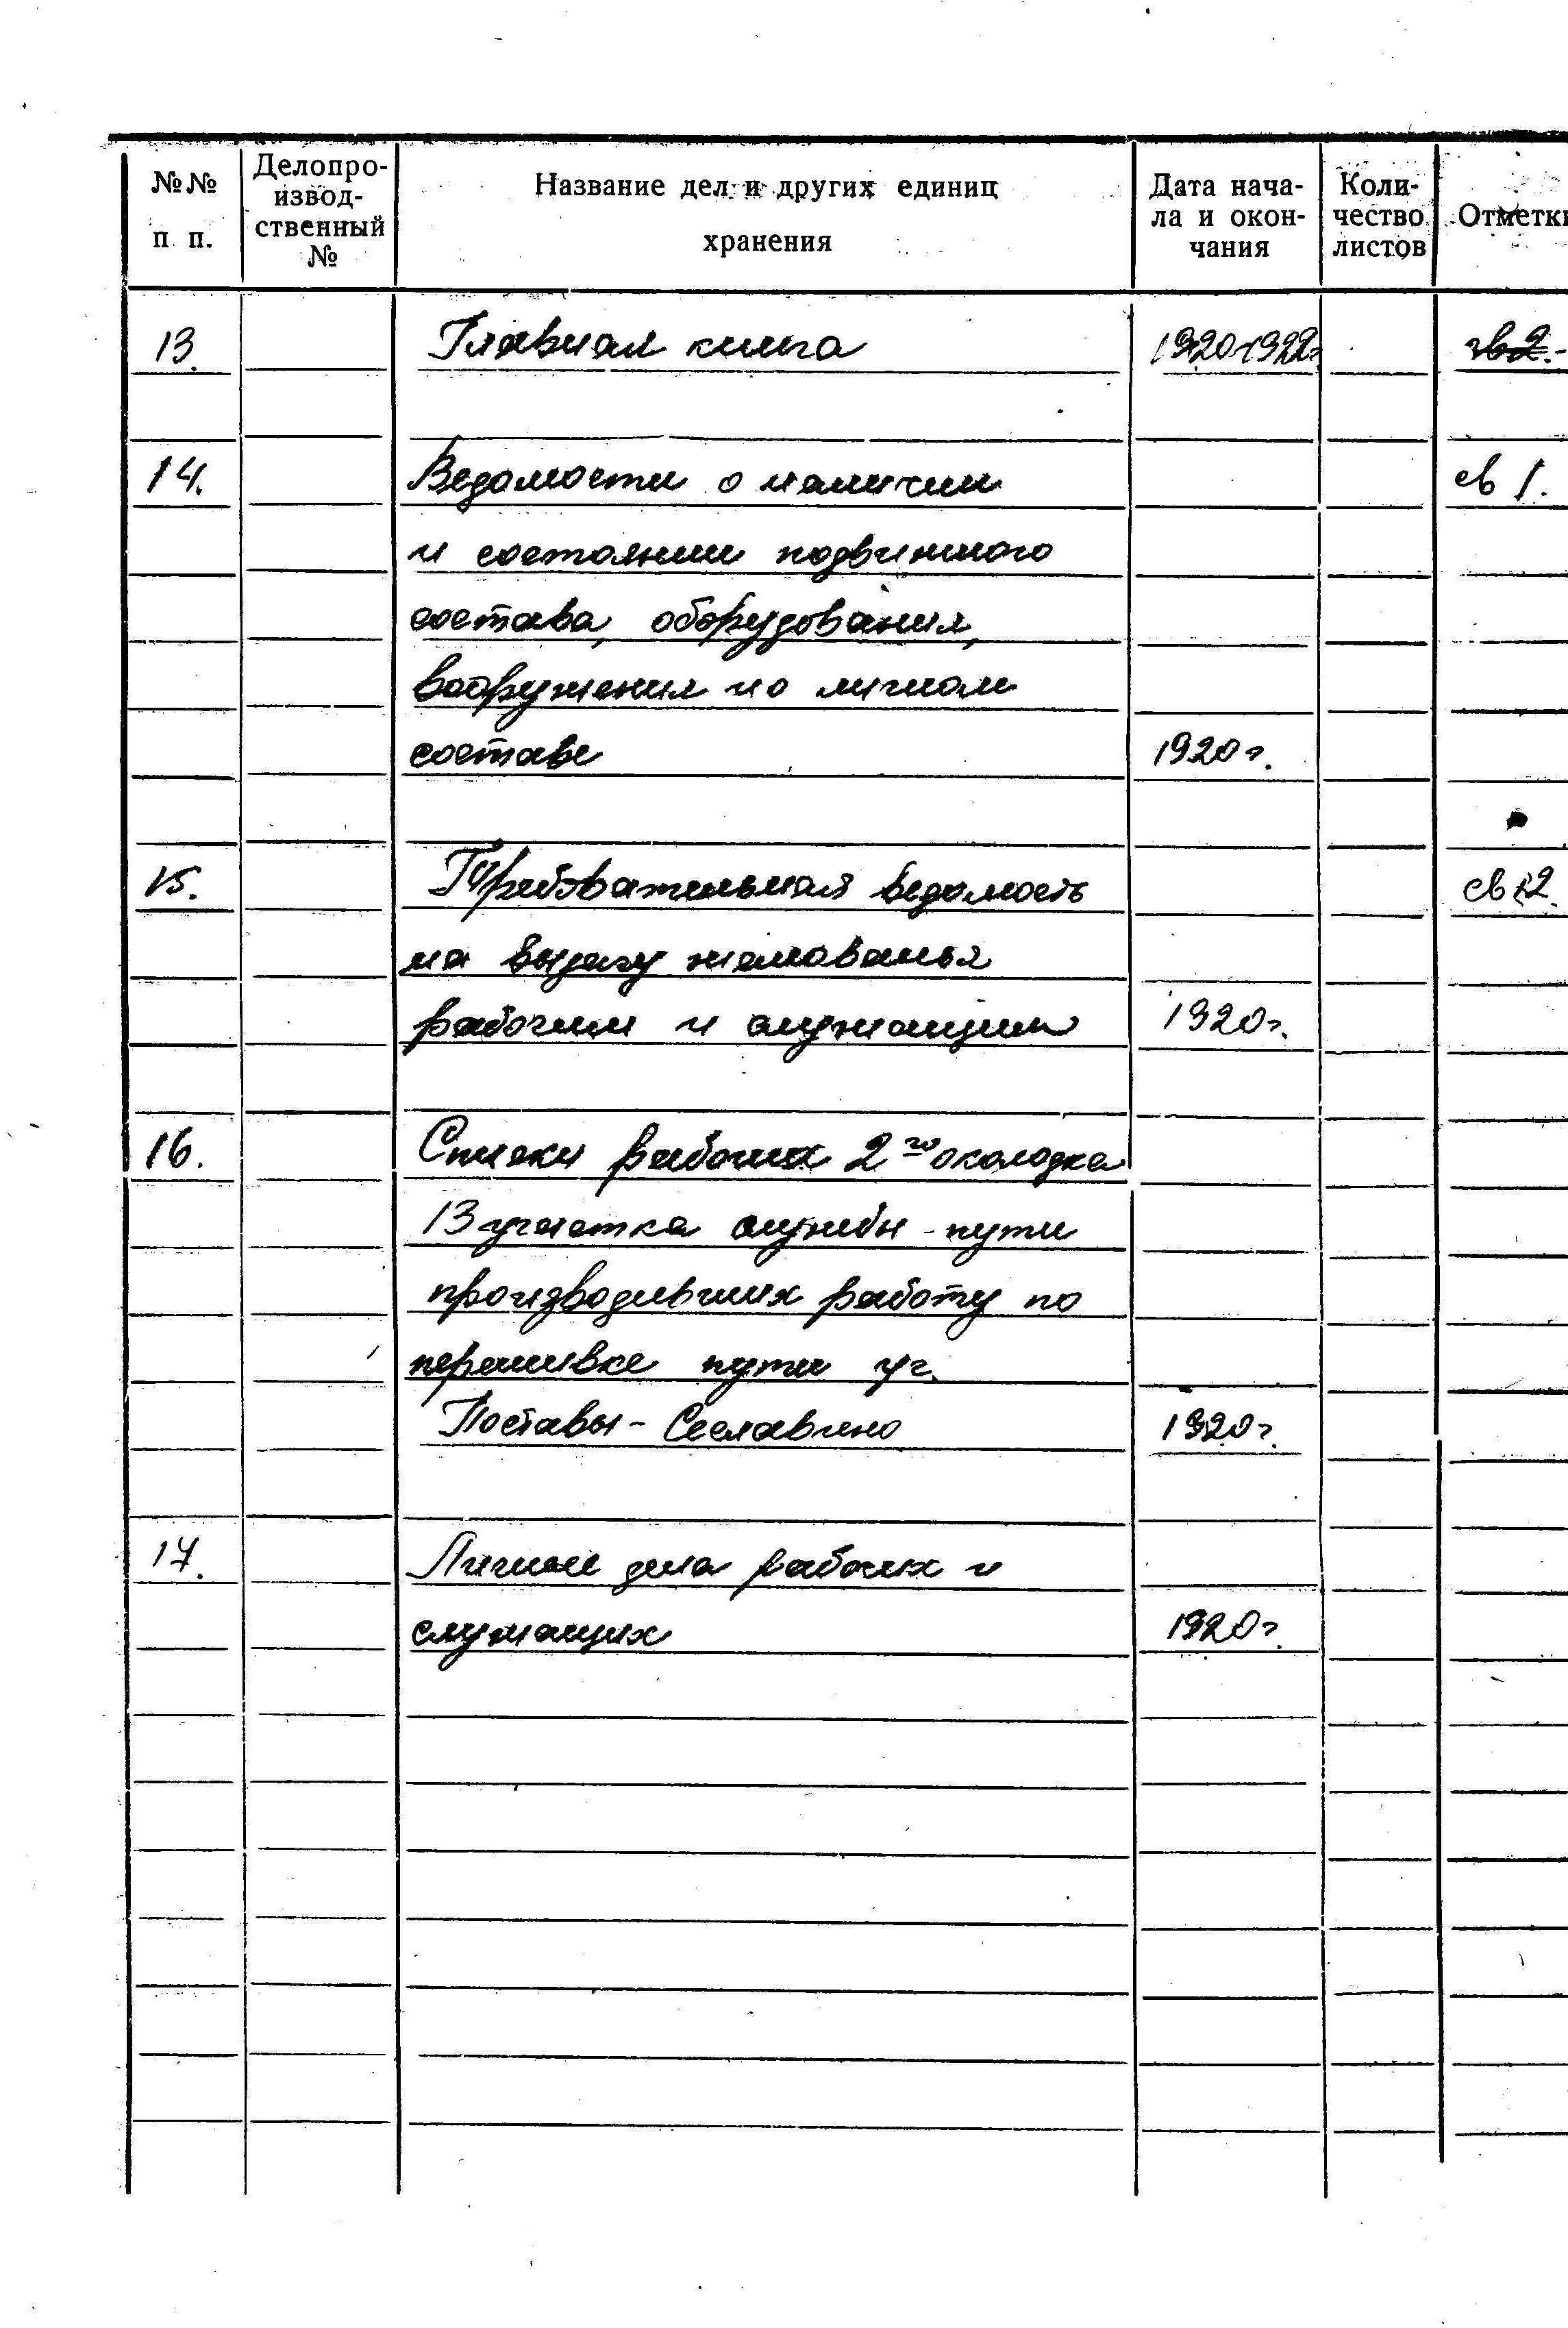 №№ п п. Делопро-изводственный № Название дел и других единиц хранения Дата нача-ла и окон-чания Коли-чество листов Отметки
13. Главная книга 1920-1922г.
14. Ведомости о наличии св 1.
и состоянии подвижного
состава, оборудования,
вооружения и о личном
составе 1920г.
15. Требовательная ведомость св 2.
на выдачу жалованья
рабочим и служащим 1920г.
16. Списки рабочих 2го околодка
13 участка службы-пути
производивших работу по
перешивке пути уч.
Поставы-Сеславино 1920г.
17. Личные дела рабочих и
служащих 1920г.